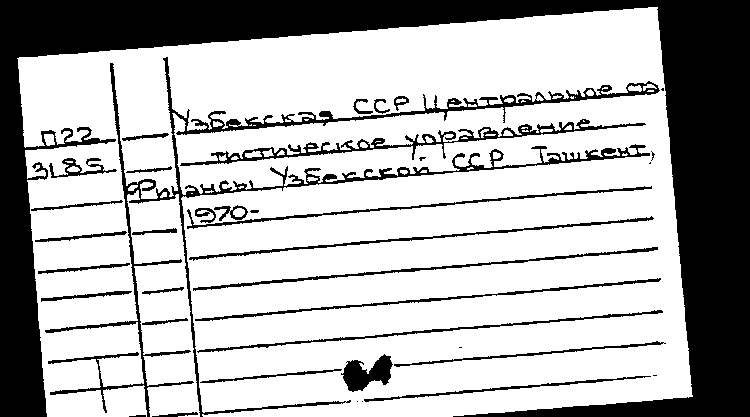 Узбекская ССР Центральное ста-
П22 тистическое управление.
3185 Финансы Узбекской ССР Ташкент,
1970-